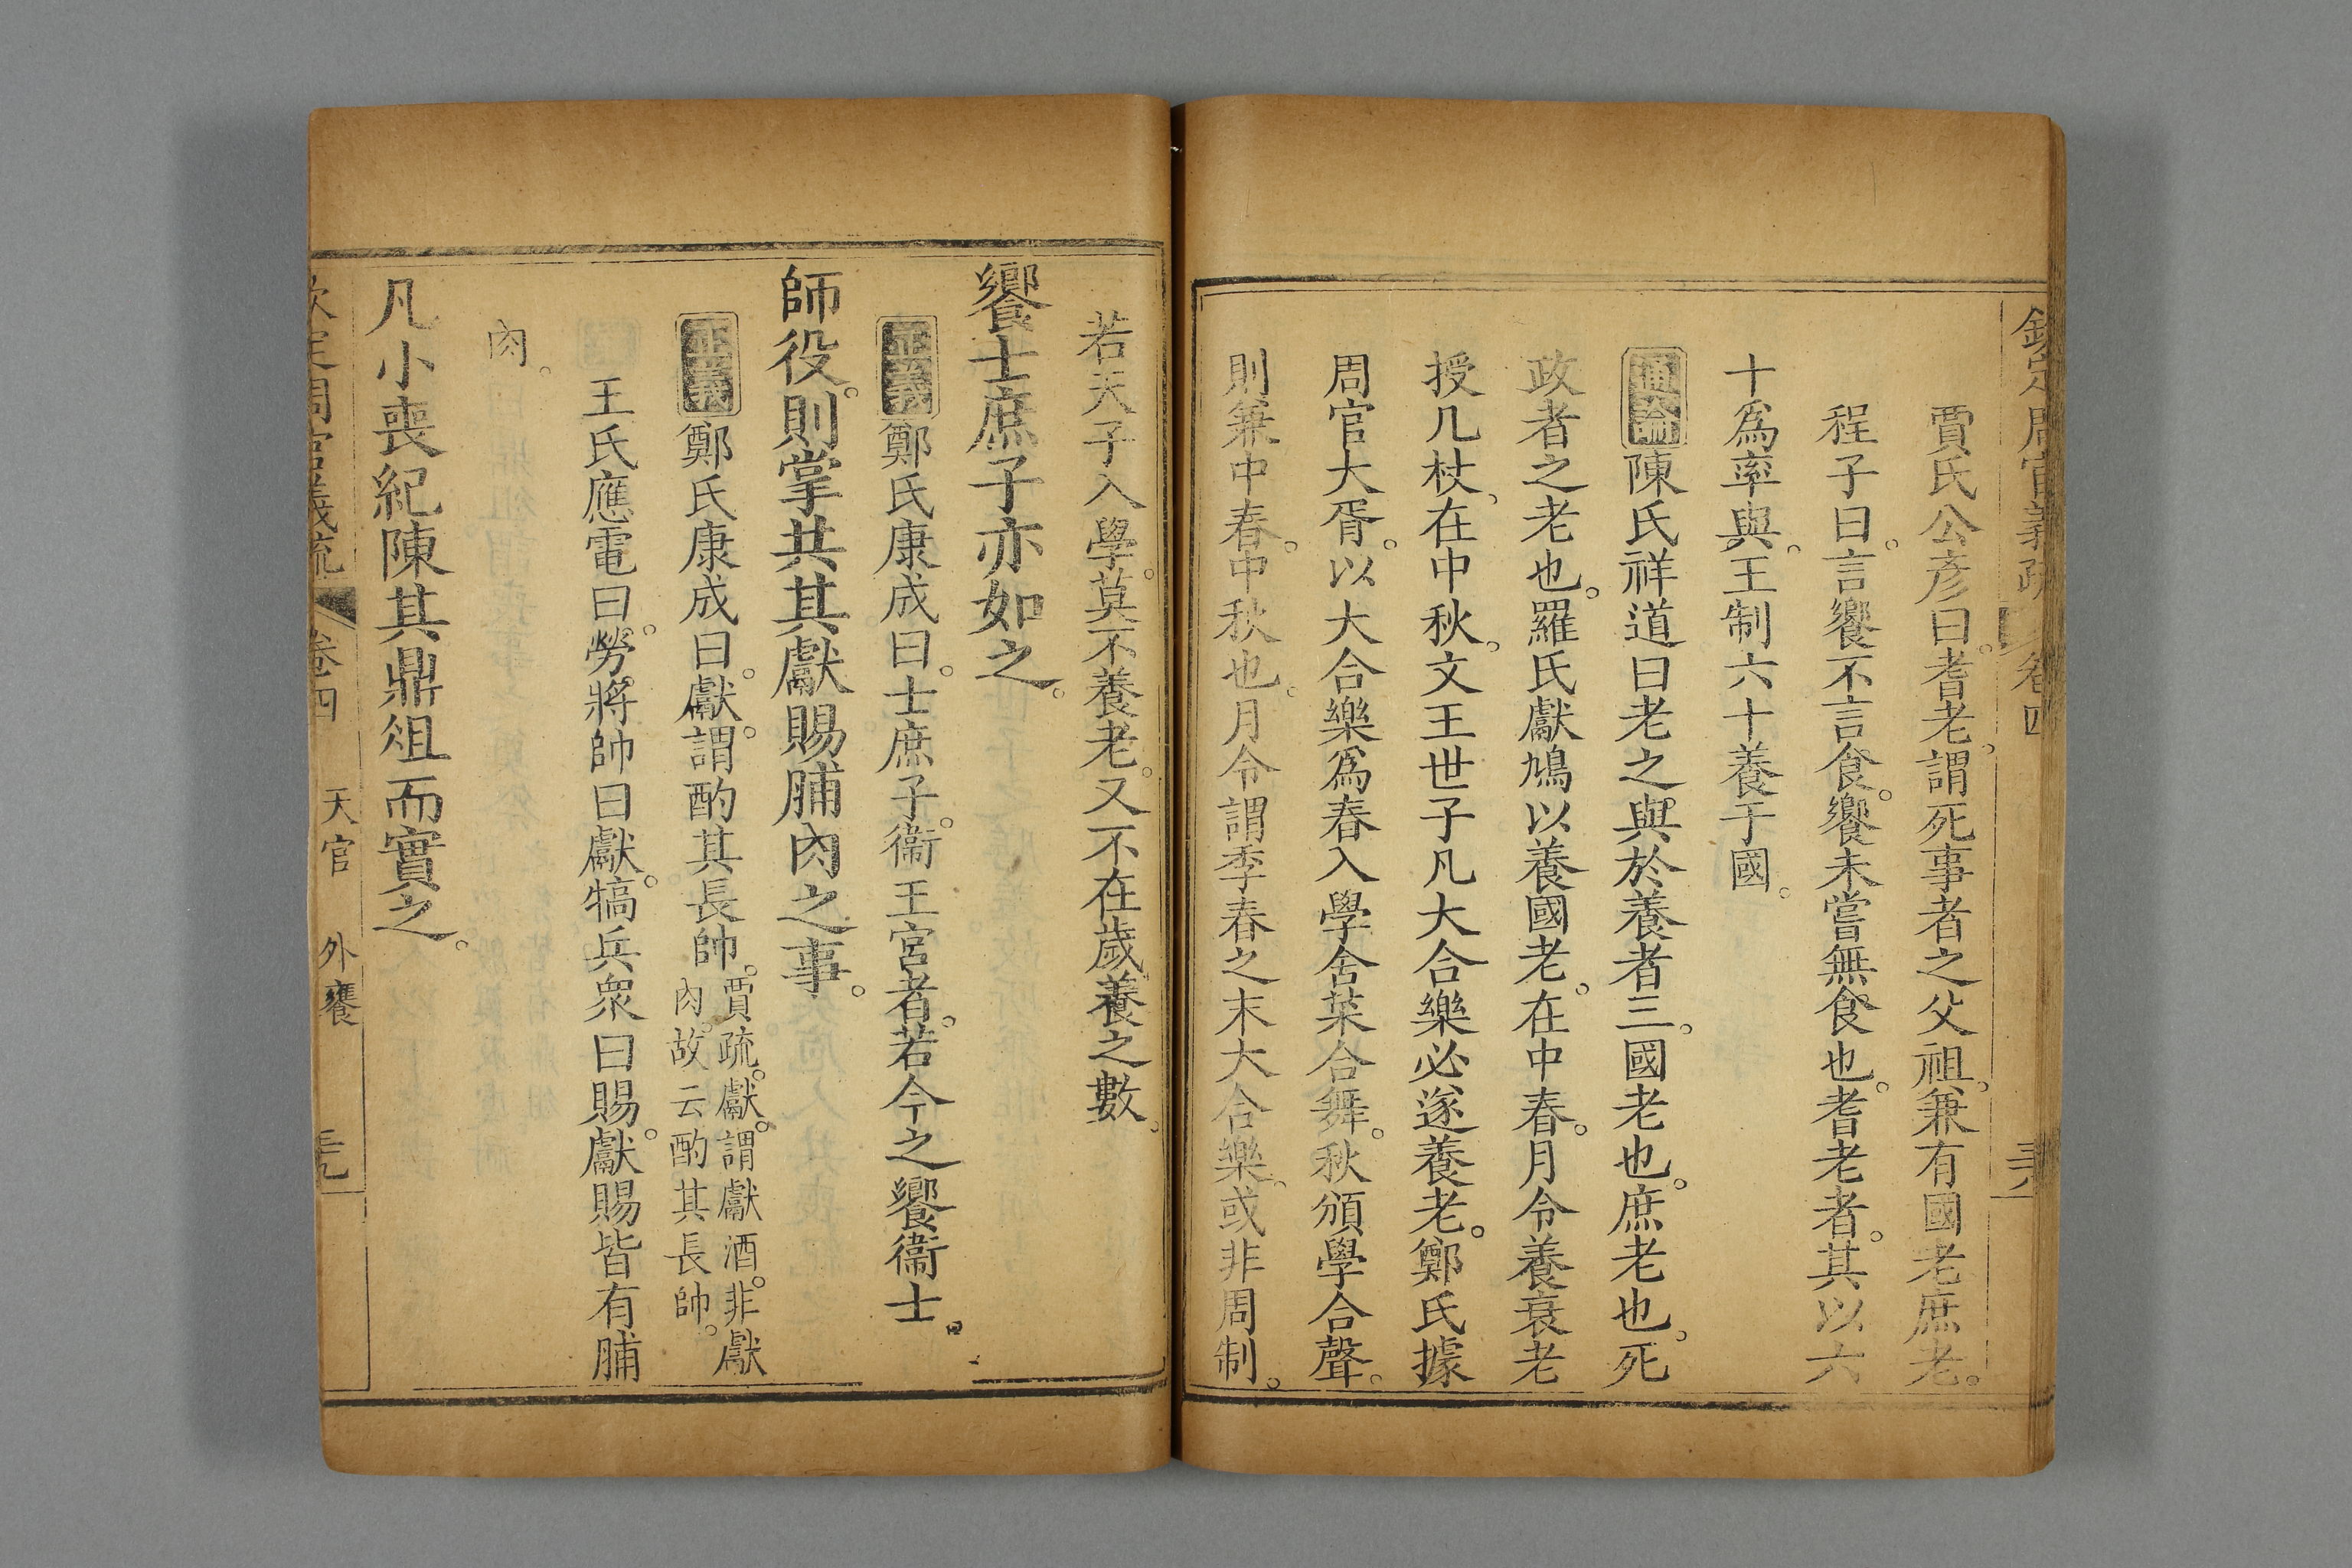 欽定周官義疏 卷四
賈氏公彥曰。耆老。謂死事者之父祖。兼有國老庶老。
程子曰。言饗不言食。饗未嘗無食也。耆老者。其以六
十爲率與。王制六十養于國。
通論 陳氏祥道曰老之與於養者三。國老也。庶老也。死
政者之老也。羅氏獻鳩以養國老。在中春。月令養衰老
授几杖。在中秋。文王世子凡大合樂必遂養老。鄭氏據
周官大胥。以大合樂爲春入學舍菜合舞。秋頒學合聲。
則兼中春。中秋也。月令謂季春之末大合樂。或非周制。
若天子入學。莫不養老。又不在歲養之數。
饗士庶子亦如之。
正義 鄭氏康成曰。士庶子。衞王宮者。若今之饗衞士。
師役。則掌共其獻賜脯肉之事。
正義 鄭氏康成曰。獻。謂酌其長帥。賈疏。獻。謂獻酒。非獻
肉。故云酌其長帥。
王氏應電曰。勞將帥曰獻。犒兵衆曰賜。獻賜皆有脯
肉。
凡小喪紀陳其鼎俎而實之。
欽定周官義疏 卷四 天官 外饔